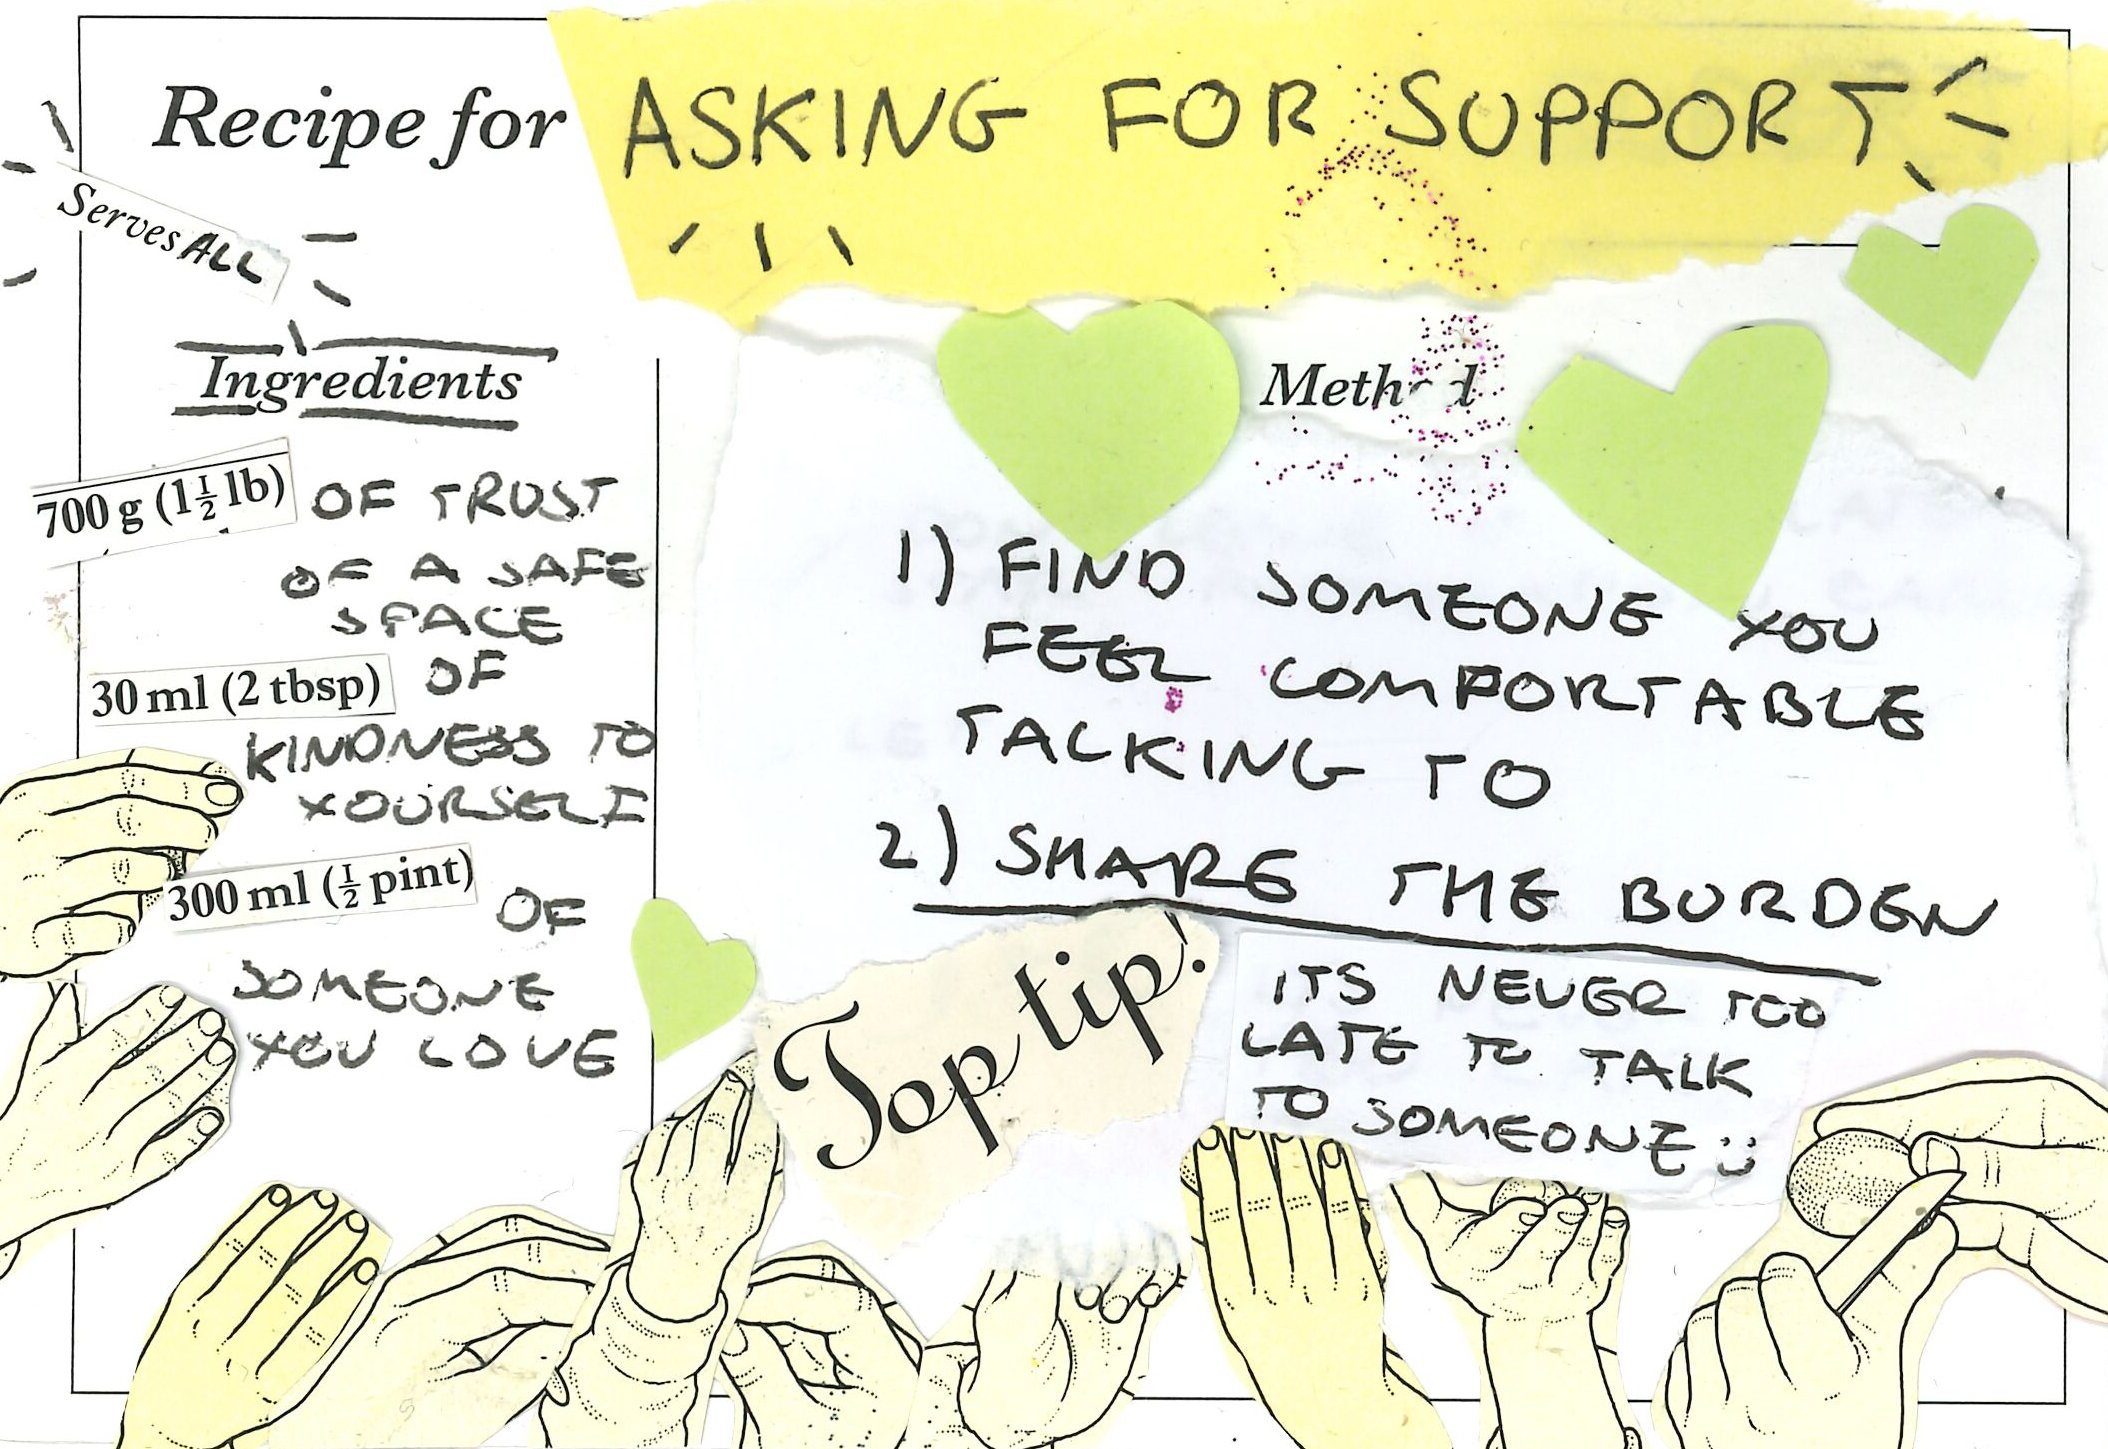 Recipe for ASKING FOR SUPPORT
Serves ALL
Ingredients
700 g (1½ lb) OF TRUST
OF A SAFE
SPACE
30 ml (2 tbsp) OF
KINDNESS TO
YOURSELF
300 ml (½ pint) OF
SOMEONE
YOU LOVE
Method
1) FIND SOMEONE YOU
FEEL COMFORTABLE
TALKING TO
2) SHARE THE BURDEN
Top tip!
ITS NEVER TOO
LATE TO TALK
TO SOMEONE :)